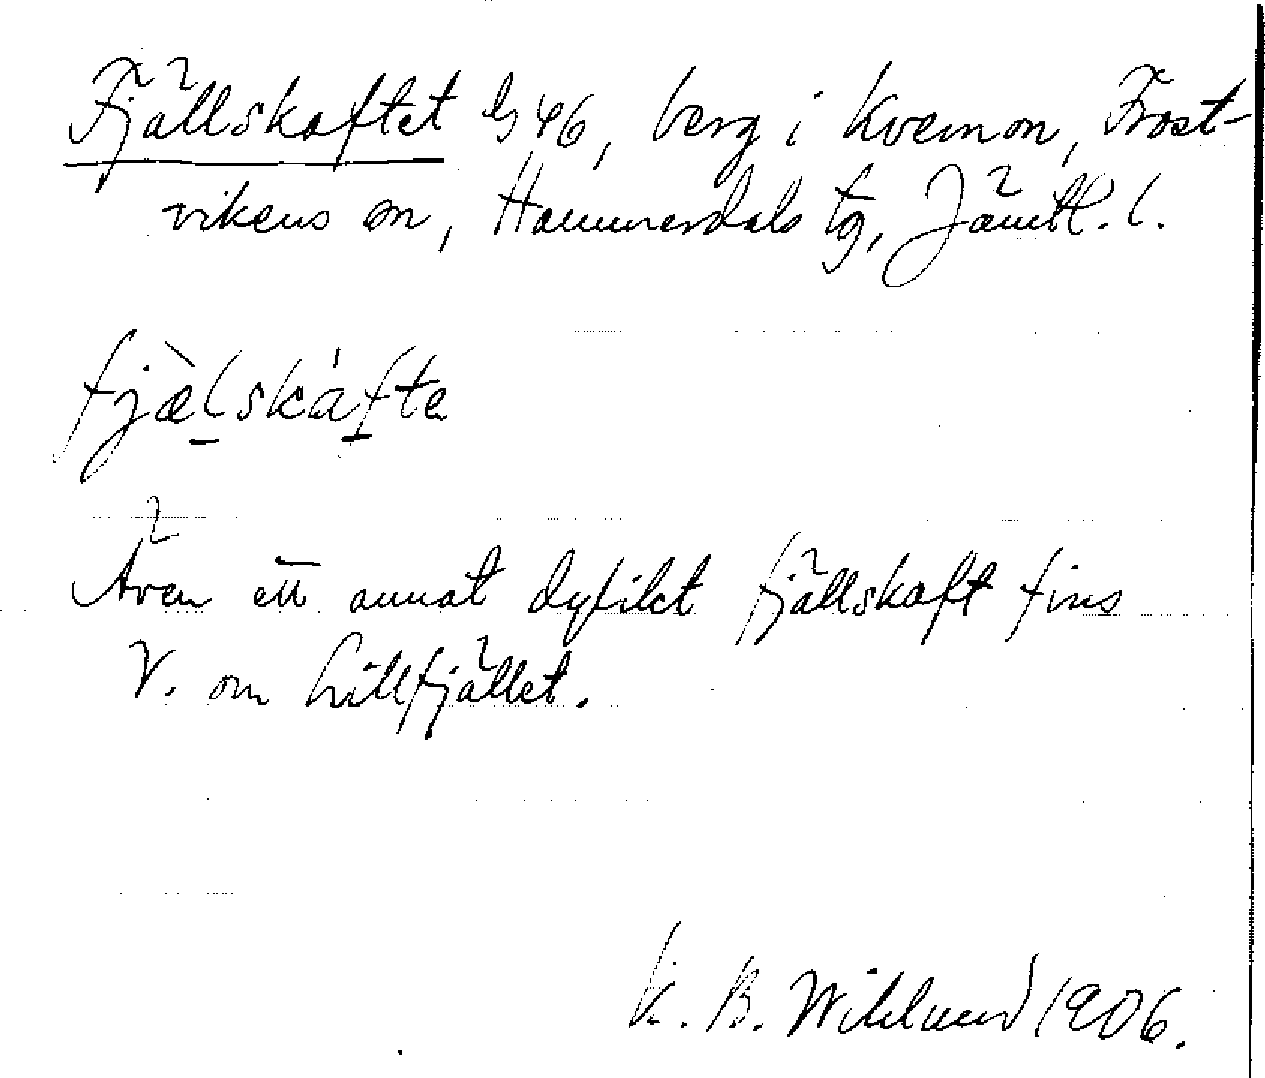 Fjällskaftet b 46, berg i Kvarnon, Frost-
vikens sn, Hammerdals tg, Jämtl. l.
fjælskafte
Även ett annat dylikt fjällskaft fins
V. om Lillfjället.
K. B. Wiklund 1906.